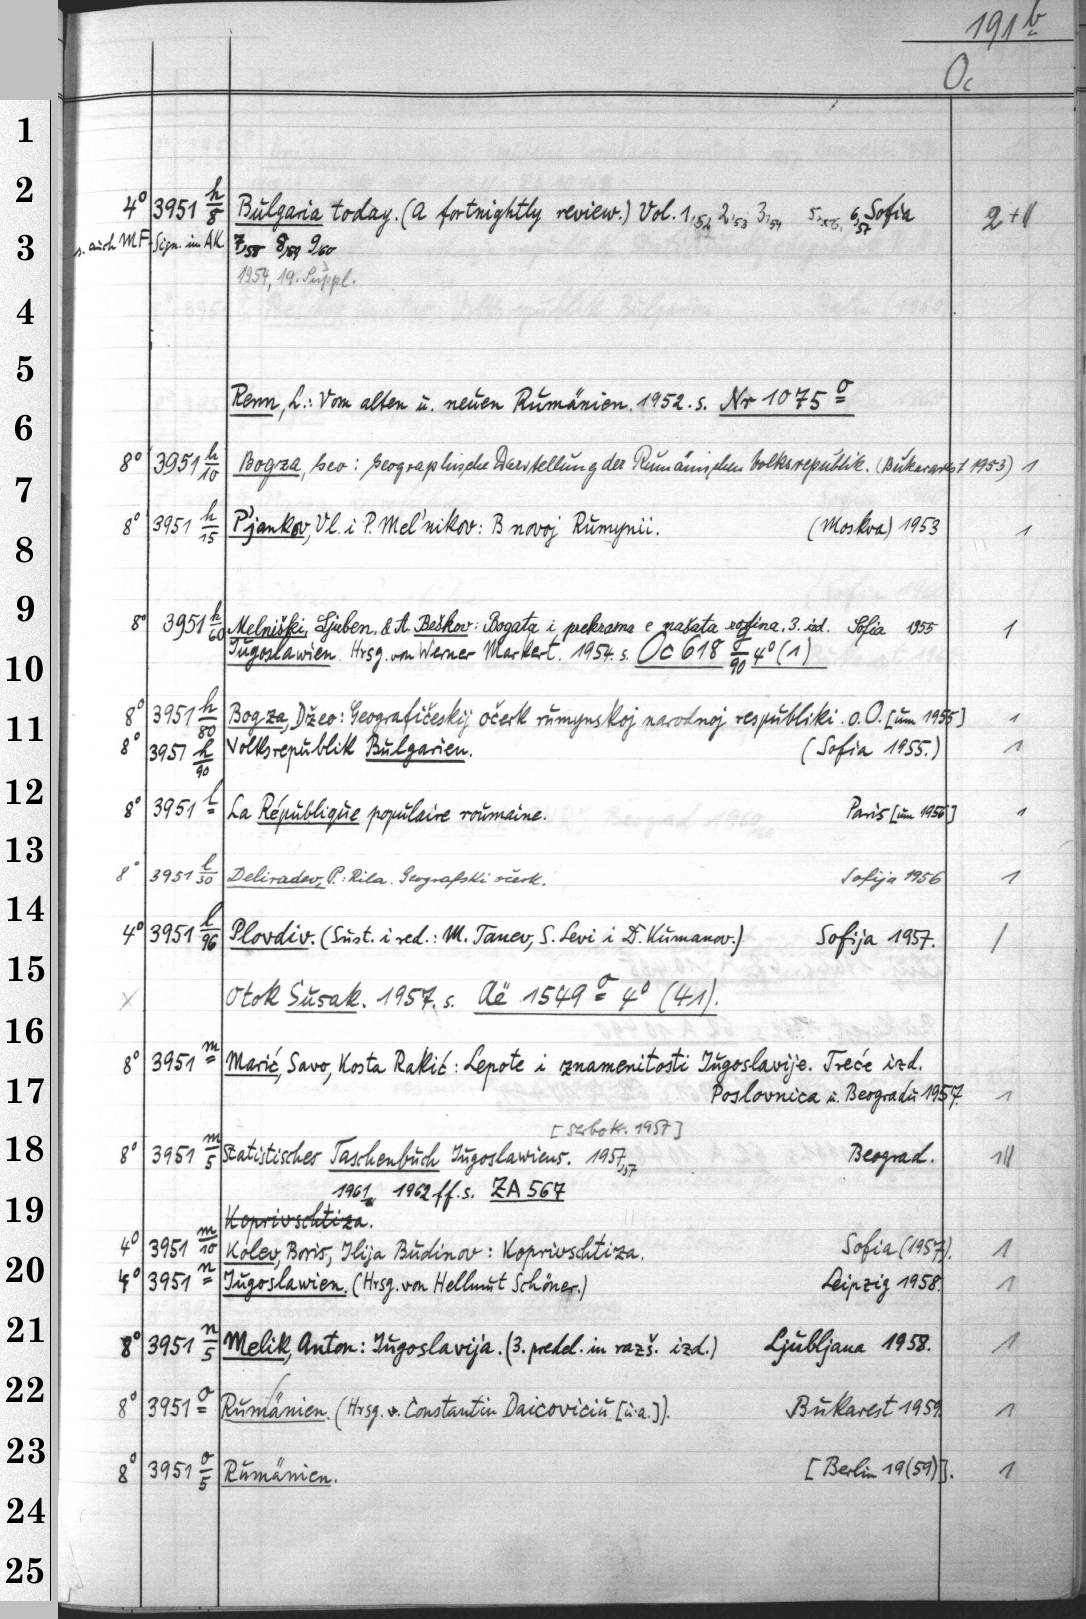 191 b
Oc
1
2
4° 3951 h/8 Bulgaria today. (A fortnightly review.) Vol. 1,52 2,53 3,54 5,56, 6,57 Sofia 2+
3
s. auch MF-Sign. im AK 7,58 8,59 9,60
1954, 19. Suppl.
4
5
Renn, L.: Vom alten u. neuen Rumänien. 1952. s. Nr 1075 o
6
8° 3951 h/10 Bogza, Geo: Geographische Darstellung der Rumänischen Volksrepublik. (Bukarest 1953) 1
7
8° 3951 h/15 P'jankov, Vl. i P. Mel'nikov: B novoj Rumynii. (Moskva) 1953 1
8
9
8° 3951 h/60 Melniški, Ljuben, & A. Beškov: Bogata i prekrasna e našata rodina. 3. izd. Sofia 1955 1
10
Jugoslawien. Hrsg. von Werner Markert. 1954. s. Oc 618 σ/90 4° (1)
11
8° 3951 h/80 Bogza, Džeo: Geografičeskij očerk rumynskoj narodnoj respubliki. o.O. [um 1955] 1
8° 3951 h/90 Volksrepublik Bulgarien. (Sofia 1955.) 1
12
8° 3951 l La République populaire roumaine. Paris [um 1956] 1
13
8° 3951 l/30 Deliradev, P.: Rila. Geografski očerk. Sofija 1956 1
14
4° 3951 l/96 Plovdiv. (Sust. i red.: M. Tanev, S. Levi i D. Kumanov.) Sofija 1957. /
15
x Otok Susak. 1957. s. Aë 1549 σ 4° (41).
16
8° 3951 m Marić, Savo, Kosta Rakić: Lepote i znamenitosti Jugoslavije. Treće izd.
17
Poslovnica u. Beogradu 1957. 1
[Serbokr. 1957]
18
8° 3951 m/5 Statistisches Taschenbuch Jugoslawiens. 1957,57 Beograd. 1||
1961, 1962 ff. s. ZA 567
19
Koprivschtiza.
4° 3951 m/10 Kolev, Boris, Ilija Budinov: Koprivschtiza. Sofia (1957). 1
20
4° 3951 n Jugoslawien. (Hrsg. von Hellmut Schöner.) Leipzig 1958. 1
21
8° 3951 n/5 Melik, Anton: Jugoslavija. (3. predel. in razš. izd.) Ljubljana 1958. 1
22
8° 3951 o Rumänien. (Hrsg. v. Constantin Daicoviciu [u.a.]). Bukarest 1959. 1
23
8° 3951 o/5 Rumänien. [Berlin 19(59)]. 1
24
25